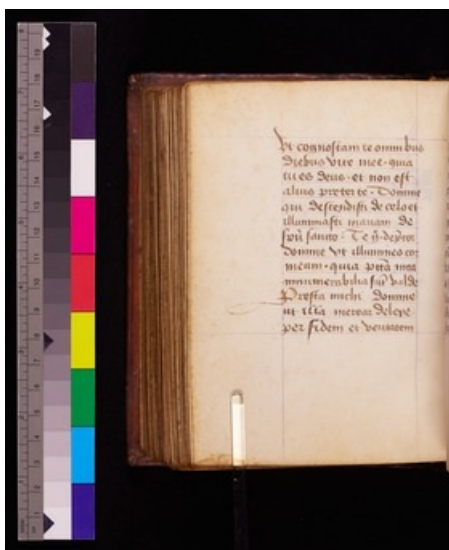 Vt cognoscam te omnibus
diebus vite mee · quia
tu es deus · et non est
alius preter te · Domine
qui descendisti de celo et
illuminasti mariam de
spũ sancto · Te g̃ · dep̃cor
domine vt illumines cor
meum · quia p̃ctã mea
innumerabilia sũt valde
Presta michi domine
ut illa merear delere
per fidem et veritatem